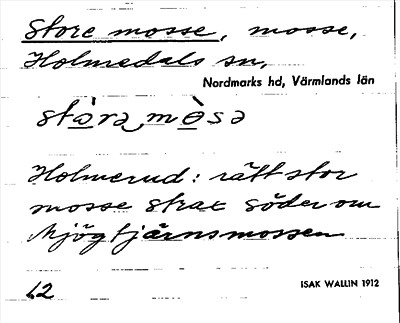 Store mosse, mosse,
Holmedals sn,
Nordmarks hd, Värmlands län
stò̠rə mò̠sə
Holmerud: rätt stor
mosse strax söder om
Mjögtjärnsmossen
62
ISAK WALLIN 1912